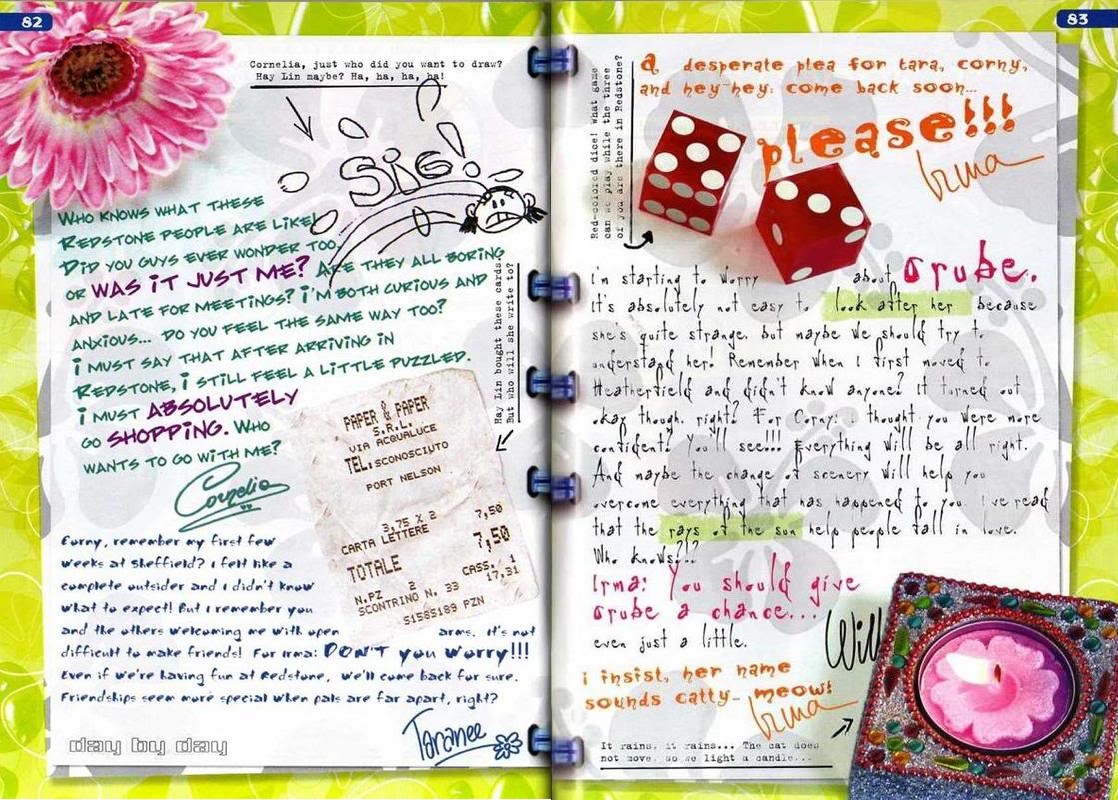 82
Cornelia, just who did you want to draw?
Hay Lin maybe? Ha, ha, ha, ha!
SIG!
WHO KNOWS WHAT THESE
REDSTONE PEOPLE ARE LIKE!
DID YOU GUYS EVER WONDER TOO,
OR WAS IT JUST ME? ARE THEY ALL BORING
AND LATE FOR MEETINGS? I'M BOTH CURIOUS AND
ANXIOUS... DO YOU FEEL THE SAME WAY TOO?
I MUST SAY THAT AFTER ARRIVING IN
REDSTONE, I STILL FEEL A LITTLE PUZZLED.
I MUST ABSOLUTELY
GO SHOPPING. WHO
WANTS TO GO WITH ME?
Cornelia
Hay Lin bought these cards
But who will she write to?
PAPER & PAPER
S.R.L.
VIA ACQUALUCE
TEL:SCONOSCIUTO
PORT NELSON
3,75 X 2 7,50
CARTA LETTERE
TOTALE 7,50
CASS. 1
N.PZ 2 17,31
SCONTRINO N. 33
S1585189 PZN
Corny, remember my first few
weeks at Sheffield? I felt like a
complete outsider and I didn't know
what to expect! But I remember you
and the others welcoming me with open arms. It's not
difficult to make friends! For Irma: DON'T you worry!!!
Even if we're having fun at Redstone, we'll come back for sure.
Friendships seem more special when pals are far apart, right?
Taranee
day by day
83
Red-colored dice! What game
can we play while the three
of you are there in Redstone?
a desperate plea for tara, corny,
and hey-hey: come back soon...
please!!!
Irma
i'm starting to worry about Orube.
It's absolutely not easy to look after her because
she's quite strange. but maybe we should try to
understand her! Remember when I first moved to
Heatherfield and didn't know anyone? It turned out
okay though, right? For Corny: i thought you were more
confident? You'll see!!! Everything will be all right.
And maybe the change of scenery will help you
overcome everything that has happened to you. I've read
that the rays of the sun help people fall in love.
Who knows?!?
Irma: You should give
Orube a chance...
even just a little.
Will
i insist, her name
sounds catty- meow!
Irma
It rains, it rains... The cat does
not move, so we light a candle...